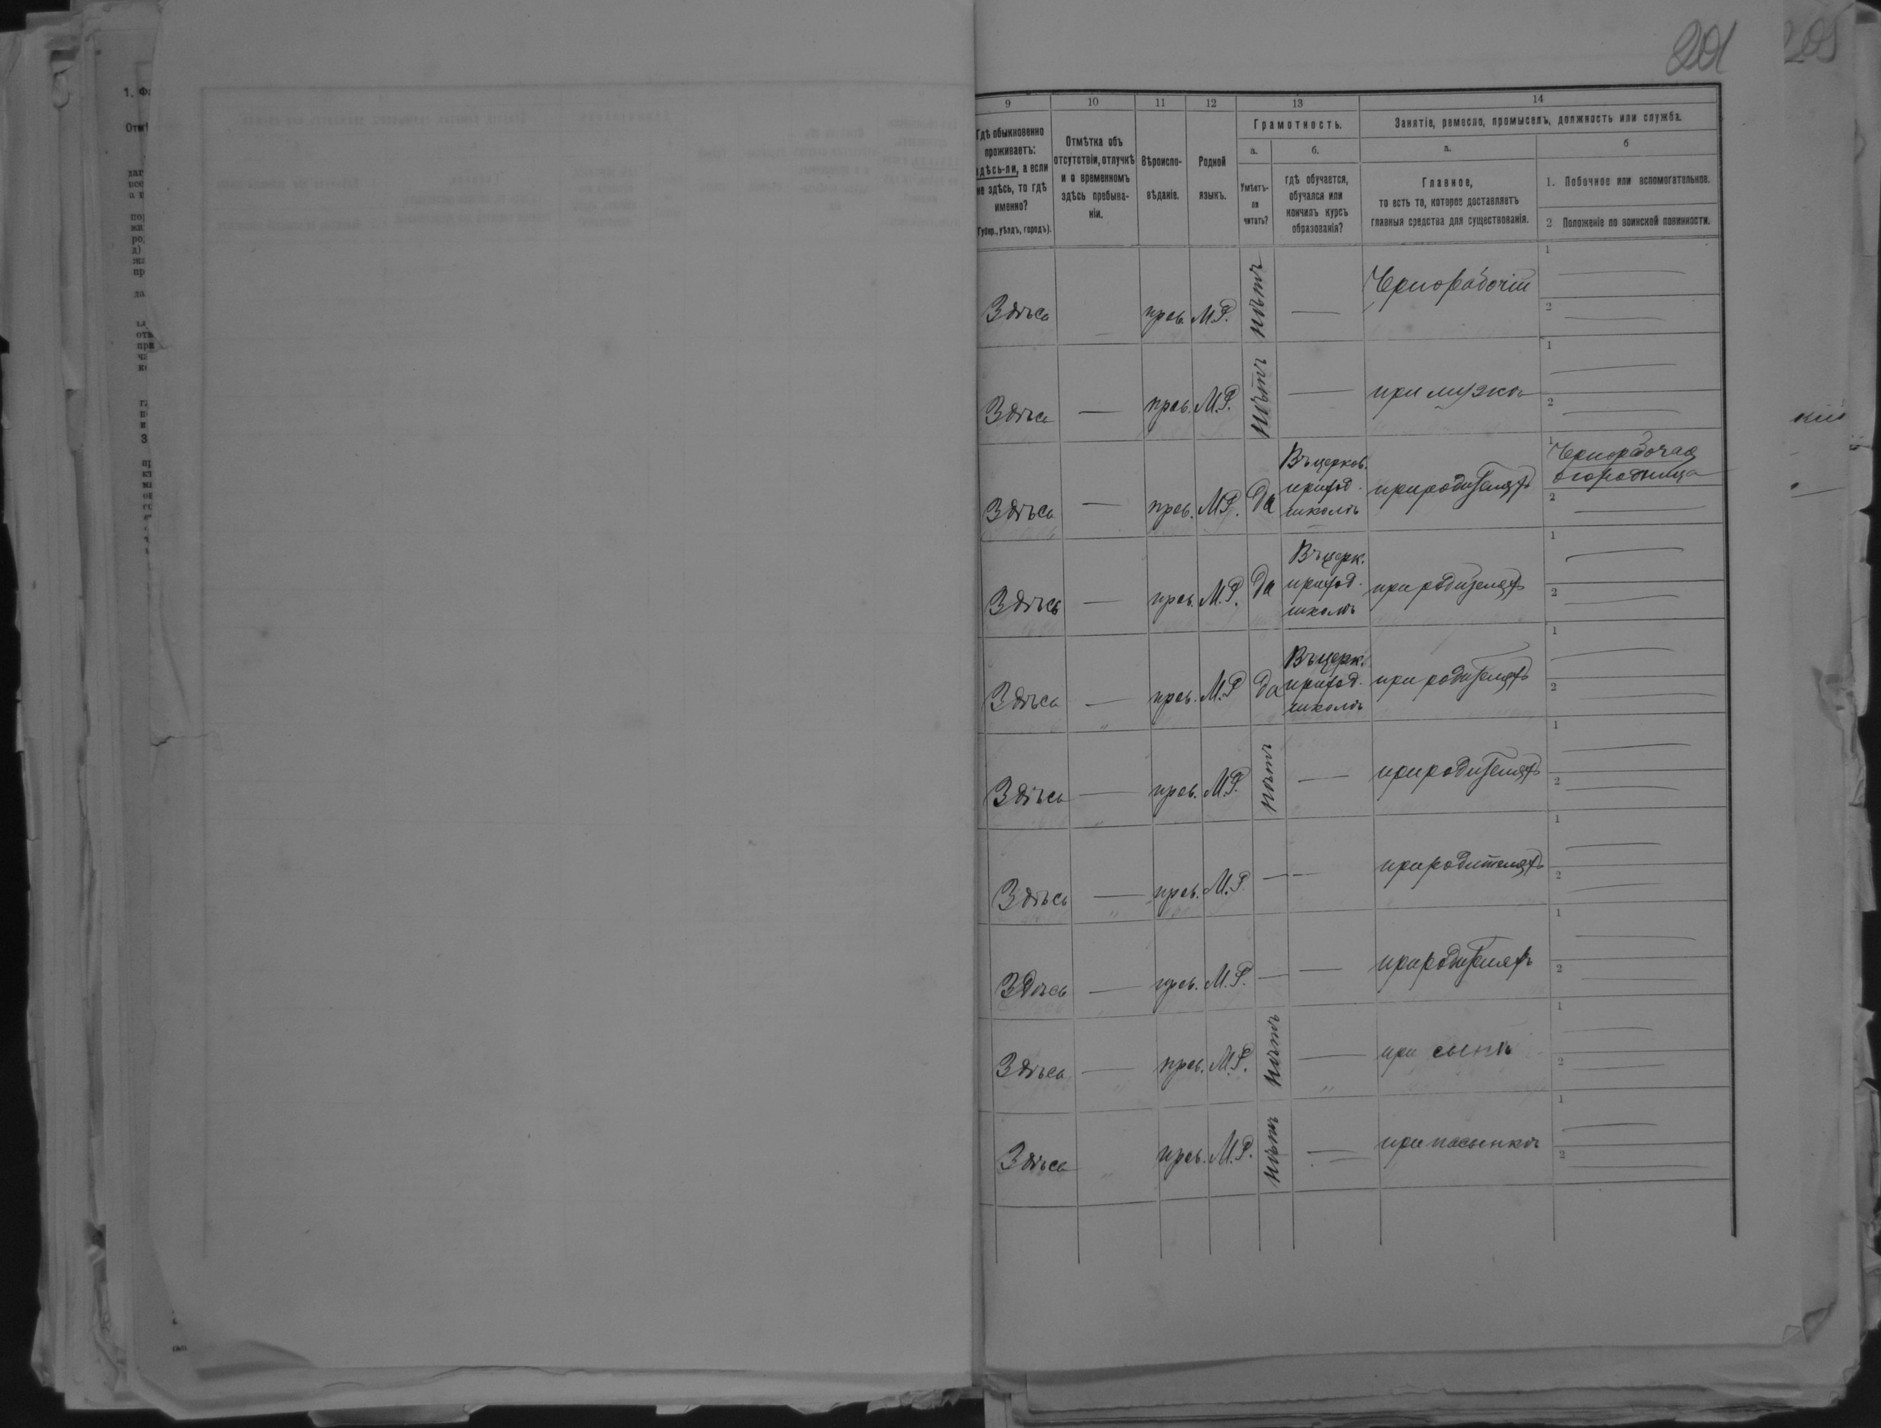 201
205
9 10 11 12 13 14
Гдѣ обыкновенно проживаетъ: здѣсь-ли, а если не здѣсь, то гдѣ именно? (Губер., уѣздъ, городъ).
Отмѣтка объ отсутствіи, отлучкѣ и о временномъ здѣсь пребываніи.
Вѣроисповѣданіе.
Родной языкъ.
Грамотность.
а. б.
Умѣетъ-ли читать?
гдѣ обучается, обучался или кончилъ курсъ образованія?
Занятіе, ремесло, промыселъ, должность или служба.
а. б
Главное, то есть то, которое доставляетъ главныя средства для существованія.
1. Побочное или вспомогательное.
2 Положеніе по воинской повинности.
Здѣсь прав. М.Р. нѣтъ — Чернорабочій 1 — 2 —
Здѣсь — прав. М.Р. нѣтъ — при мужѣ 1 — 2 —
Здѣсь — прав. М.Р. да Въ церков. приход. школѣ при родителяхъ 1 Чернорабочая огородница 2 —
Здѣсь — прав. М.Р. да Въ церк. приход. школѣ при родителяхъ 1 — 2 —
Здѣсь — прав. М.Р. да Въ церк. приход. школѣ при родителяхъ 1 — 2 —
Здѣсь — прав. М.Р. нѣтъ — при родителяхъ 1 — 2 —
Здѣсь — прав. М.Р. — — при родителяхъ 1 — 2 —
Здѣсь — прав. М.Р. — — при родителяхъ 1 — 2 —
Здѣсь — прав. М.Р. нѣтъ — при сынѣ 1 — 2 —
Здѣсь прав. М.Р. нѣтъ — при пасынкѣ 1 — 2 —